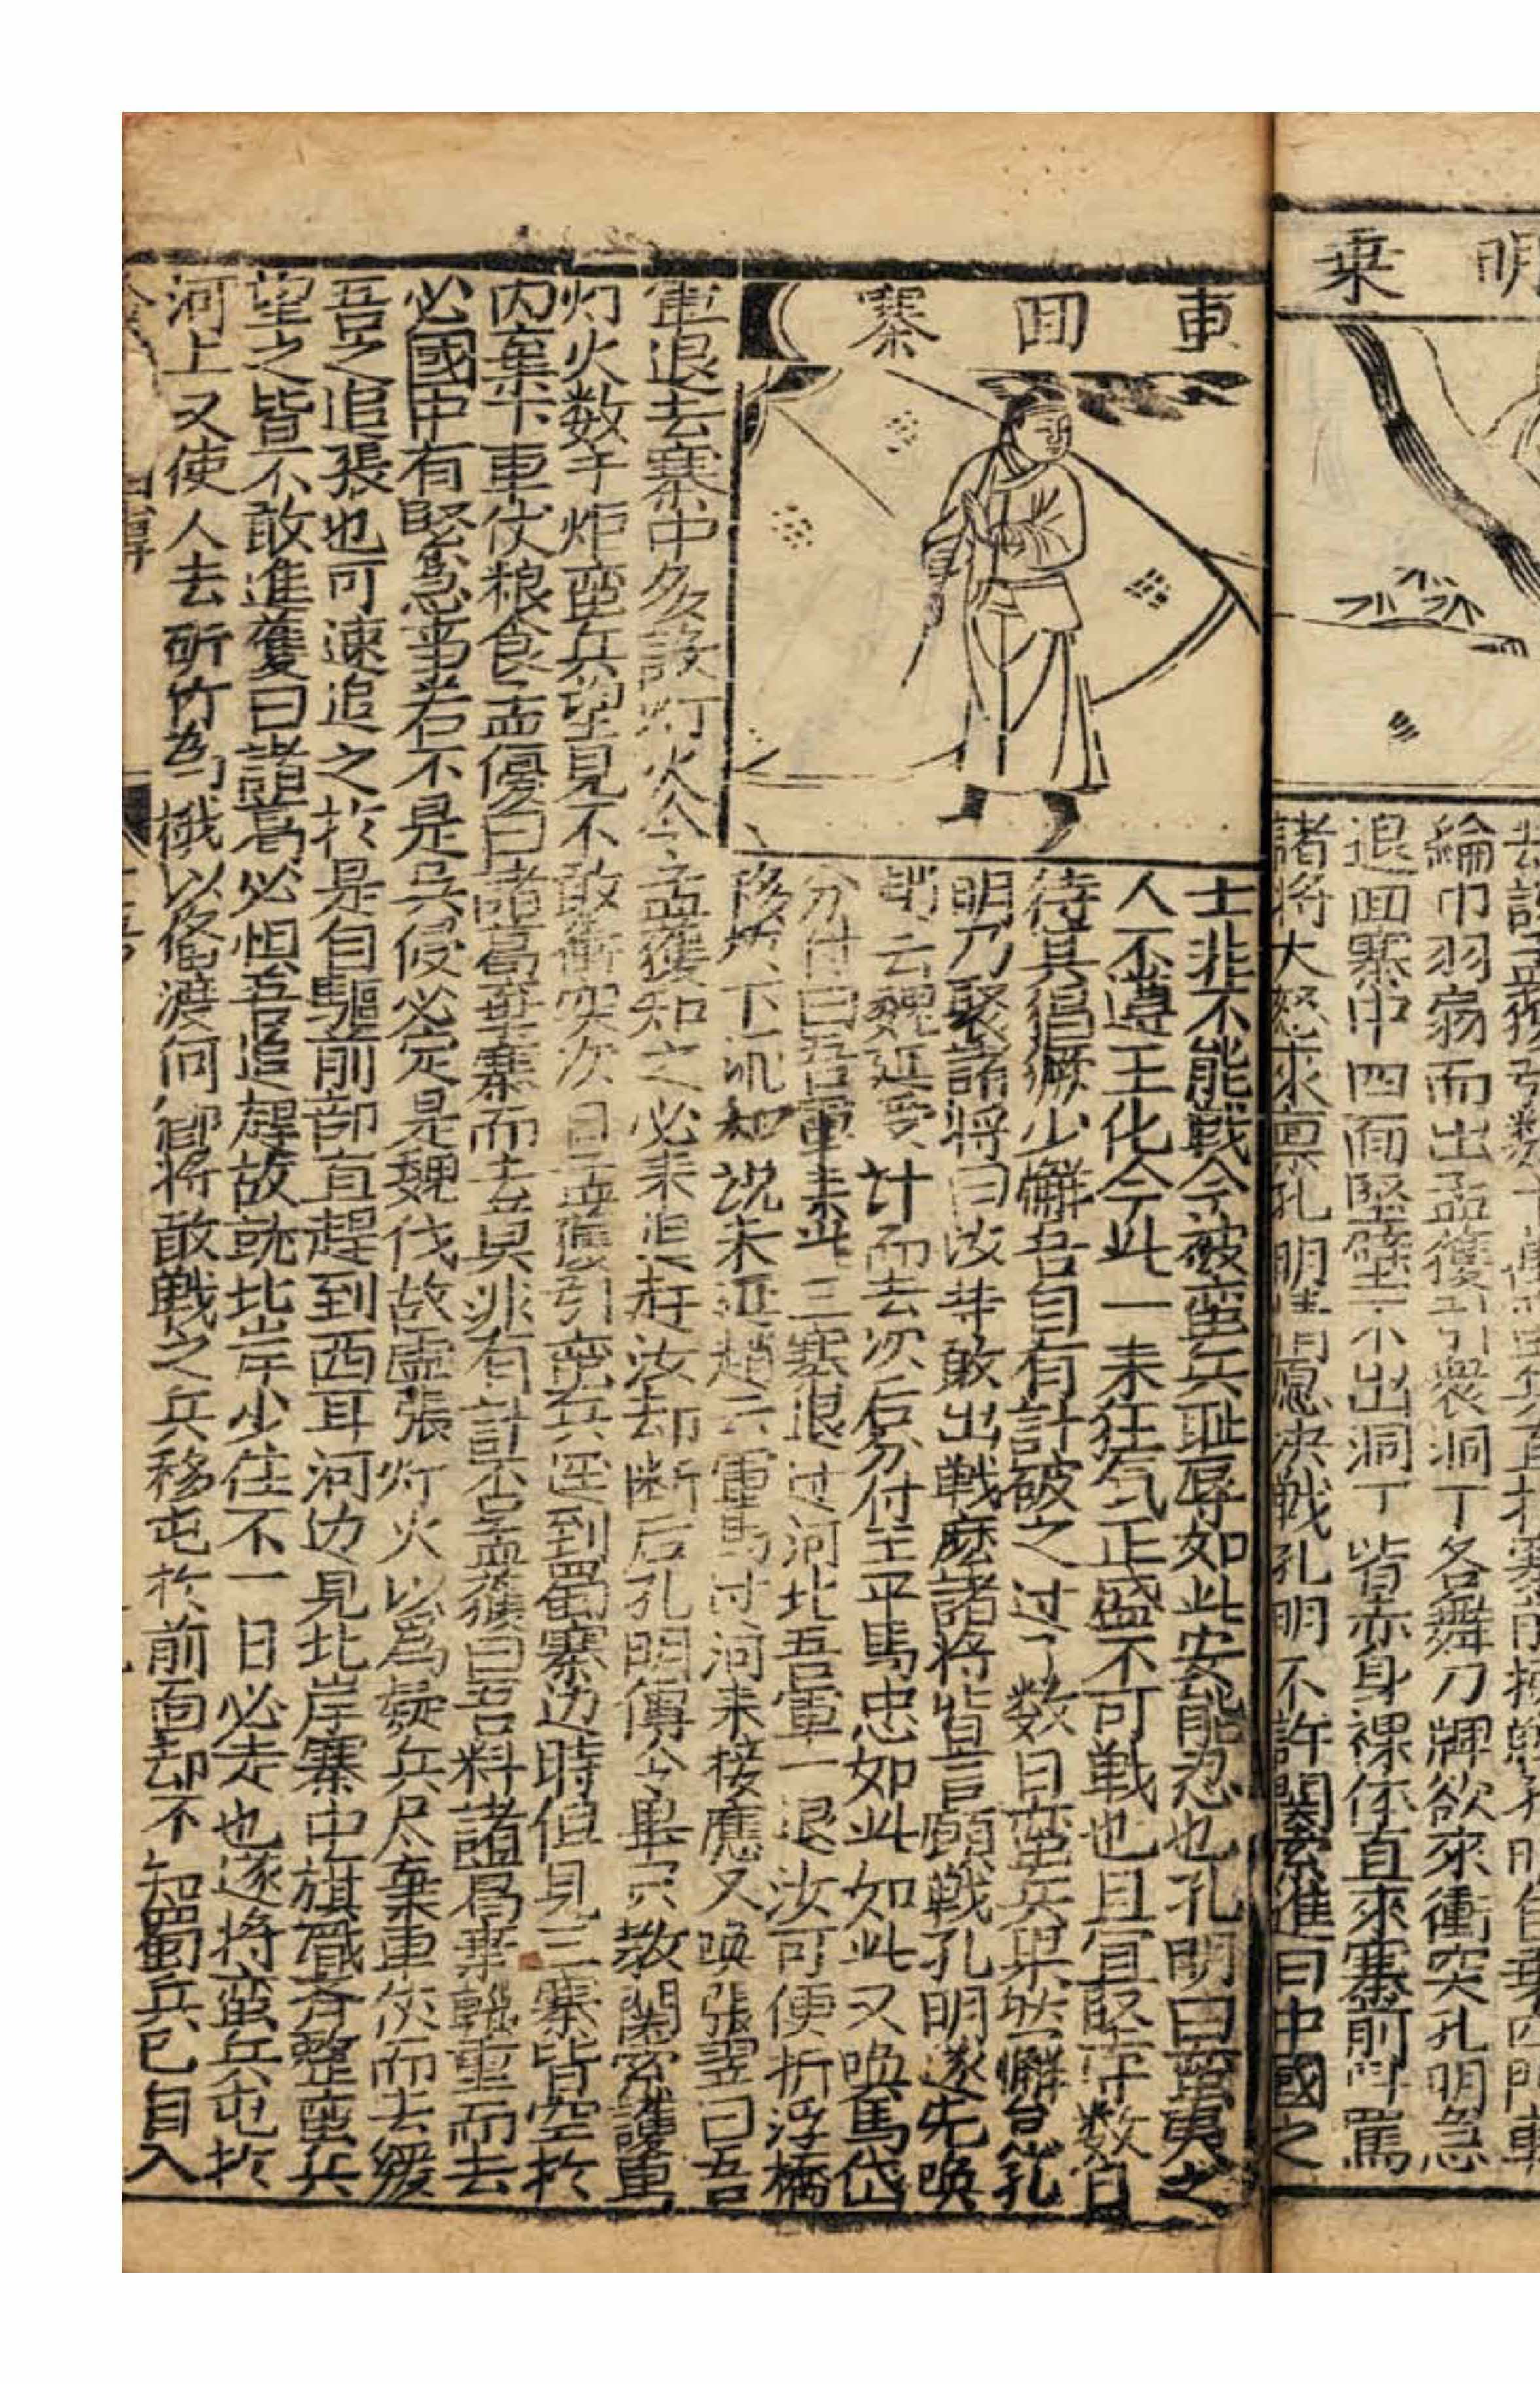 明乗
去
綸巾羽扇而出孟獲引衆洞丁各舞刀牌欲來衝突孔明急
退回寨中四面堅壁不出洞丁皆赤身裸体直來寨前罵
諸将大怒求禀孔明情愿决戦孔明不許関索進曰中國之
車回寨
士非不能戦今被蛮兵耻辱如此安能忍也孔明曰蛮夷之
人不遵王化今此一来狂気正盛不可戦也且宜堅守数日
待其猖獗少懈吾自有計破之过了数日蛮兵果然懈怠孔
明乃聚諸将曰汝等敢出戦麽諸将皆言願戦孔明遂先喚
趙云魏延受計而去次后分付王平馬忠如此如此又喚馬岱
分付曰吾軍来此三寨退过河北吾軍一退汝可便折浮橋
移於下流却説未延趙云軍馬过河来接應又喚張翌曰吾
軍退去寨中多設灯火今孟獲知之必来追赶汝却断后孔明傳令畢只教関索護車
灯火数千炬蛮兵望見不敢衝突次日孟獲引蛮兵逕到蜀寨边時但見三寨皆空於
内棄下車仗粮食孟優曰諸葛棄寨而去莫非有計否孟獲曰吾料諸葛棄輜重而去
必國中有緊急事若不是呉侵必定是魏伐故虚張灯火以為疑兵尽棄車仗而去緩
吾之追張也可速追之於是自驅前部直趕到西耳河边見北岸寨中旗幟斉整蛮兵
望之皆不敢進獲曰諸葛必惧吾追趕故就北岸少住不一日必走也遂将蛮兵屯於
河上又使人去斫竹為栰以俻渡河卽将敢戦之兵移屯於前面却不知蜀兵已自入